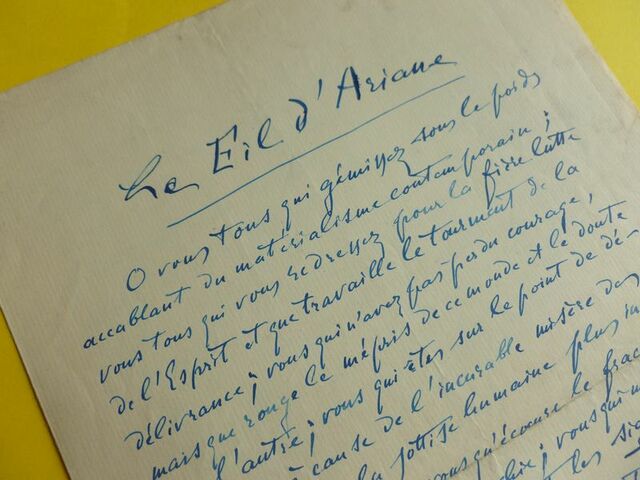 Le Fil d'Ariane
O vous tous qui gémissez sous le poids
accablant du matérialisme contemporain ;
vous tous qui vous redressez pour la fière lutte
de l'Esprit et que travaille le tourment de la
délivrance ; vous qui n'avez pas perdu courage,
mais que ronge le mépris de ce monde et le doute
de l'autre ; vous qui êtes sur le point de dé-
à cause de l'incurable misère des
la sottise humaine plus in
vous qu'écœure le frac
vous qui n
les si